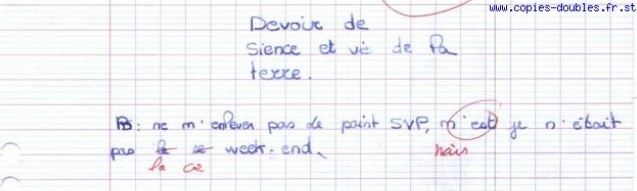 www.copies-doubles.fr.st
Devoir de
Sience et vie de la
terre.
PS: ne m'enlever pas de point SVP, m'est je n'était
pas la ce week-end.
la ce mais